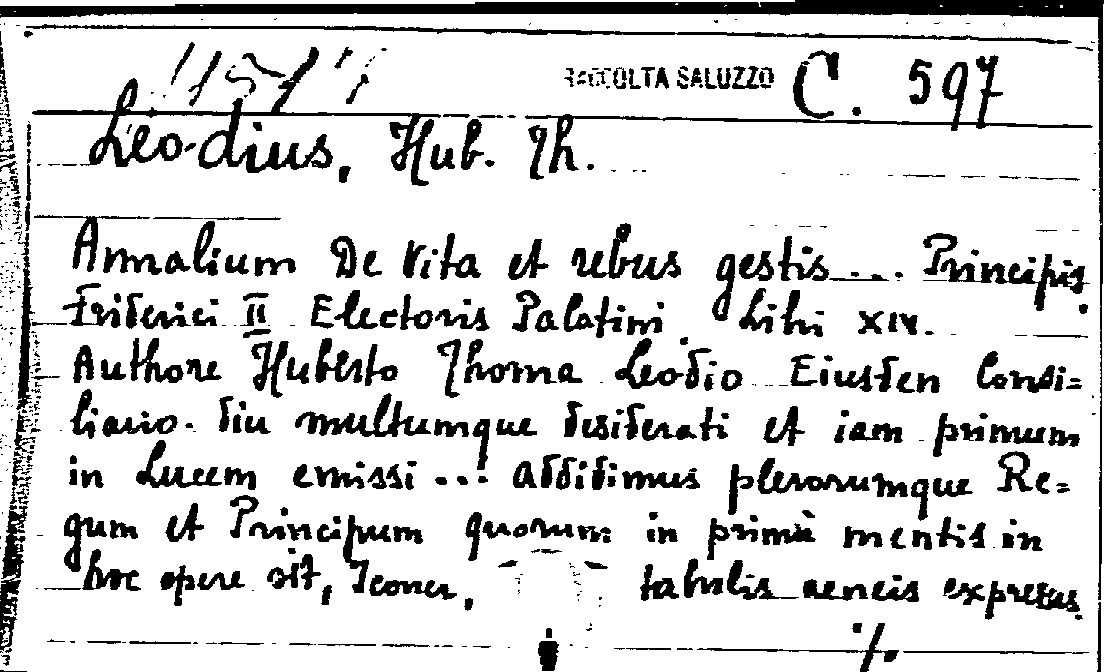 RACCOLTA SALUZZO C. 597
Leodius, Hub. Th.
Annalium De Vita et rebus gestis ... Principis
Friderici II Electoris Palatini Libri XIV.
Authore Huberto Thoma Leodio Eiusden Consi=
liario. diu multumque desiderati et iam primum
in Lucem emissi ... addidimus plerorumque Re=
gum et Principum quorum in primis mentis in
hoc opere sit, Icones, tabulis aeneis expressas